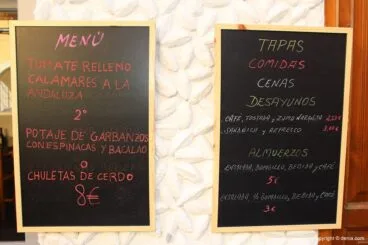 MENÚ
TOMATE RELLENO
CALAMARES A LA
ANDALUZA
2º
POTAJE DE GARBANZOS
CON ESPINACAS Y BACALAO
O
CHULETAS DE CERDO
8€
TAPAS
COMIDAS
CENAS
DESAYUNOS
CAFÉ, TOSTADA Y ZUMO NARANJA 2,50€
SANDWICH Y REFRESCO 3,00€
ALMUERZOS
ENTRADA, BOCADILLO, BEBIDA Y CAFÉ
5€
ENTRADA, ½ BOCADILLO, BEBIDA Y CAFÉ
3€
copyright © denia.com